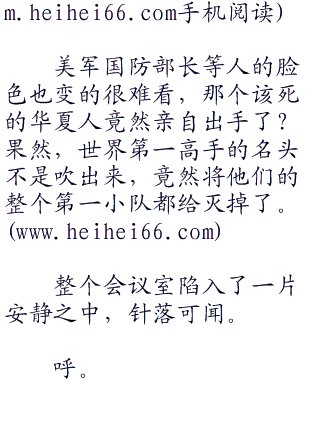 m.heihei66.com手机阅读)
美军国防部长等人的脸
色也变的很难看，那个该死
的华夏人竟然亲自出手了？
果然，世界第一高手的名头
不是吹出来，竟然将他们的
整个第一小队都给灭掉了。
(www.heihei66.com)
整个会议室陷入了一片
安静之中，针落可闻。
呼。